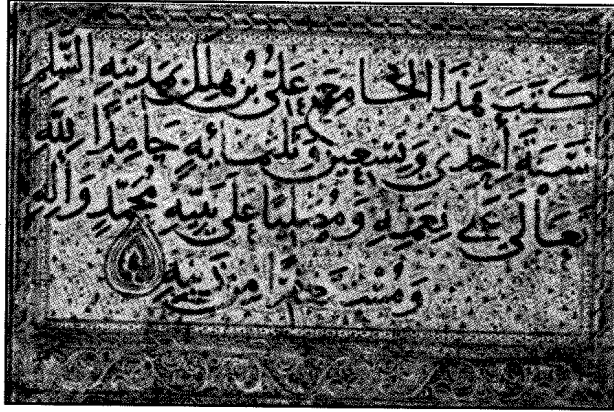 كَتَبَ هَذَا الجَامِعَ عَلىُّ بنُ هِلَلٍ بمَدينَةِ السَّلَمِ
سَنَةَ أِحدَى وَتسْعينَ وثَلثمائةٍ حَامِدًا لِلّهِ
تعَالَى عَلى نِعَمِهِ وَمُصَليًا عَلَى نَبيّهِ مُحَمّدٍ وَآلِهِ
وَمُسْتَغفِرًا مِن ذَنبِهِ